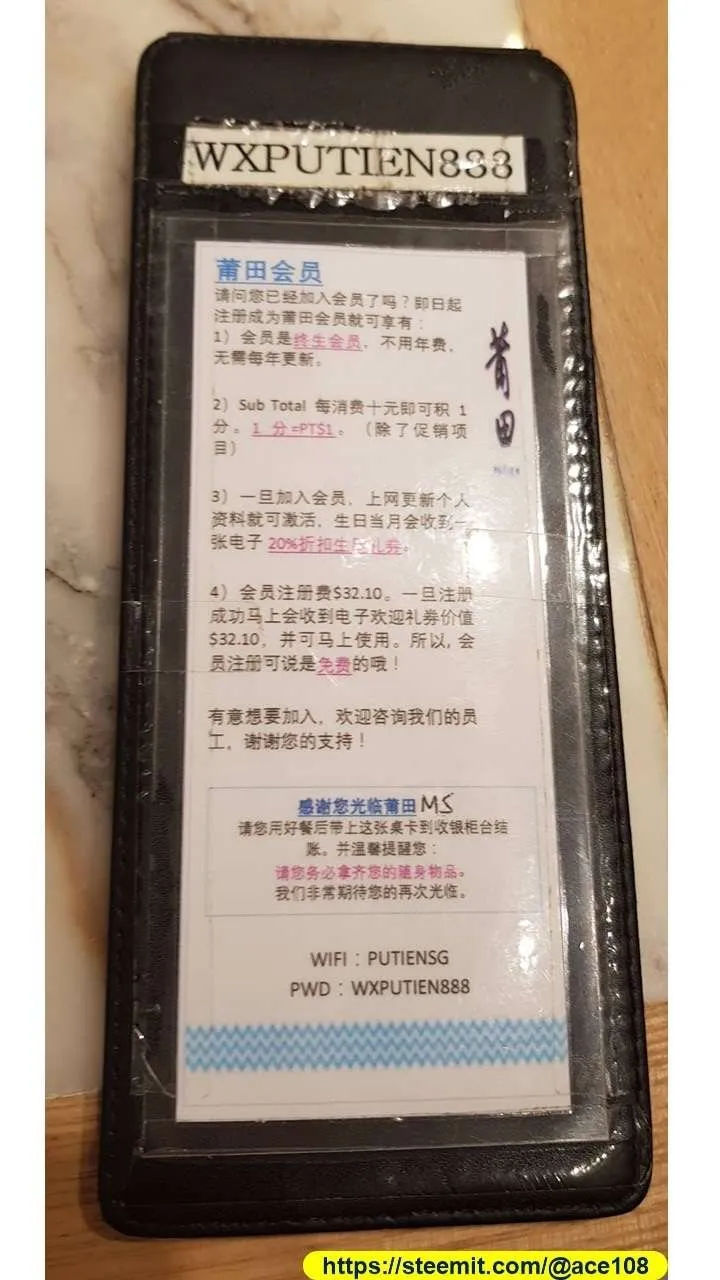 WXPUTIEN888
莆田会员
请问您已经加入会员了吗？即日起
注册成为莆田会员就可享有：
1）会员是终生会员，不用年费，
无需每年更新。
莆田
2）Sub Total 每消费十元即可积 1
分。1 分=PT$1。（除了促销项
目）
3）一旦加入会员，上网更新个人
资料就可激活，生日当月会收到一
张电子 20%折扣生日礼券。
4）会员注册费$32.10。一旦注册
成功马上会收到电子欢迎礼券价值
$32.10，并可马上使用。所以，会
员注册可说是免费的哦！
有意想要加入，欢迎咨询我们的员
工，谢谢您的支持！
感谢您光临莆田 M5
请您用好餐后带上这张桌卡到收银柜台结
账。并温馨提醒您：
请您务必拿齐您的随身物品。
我们非常期待您的再次光临。
WIFI：PUTIENSG
PWD：WXPUTIEN888
https://steemit.com/@ace108